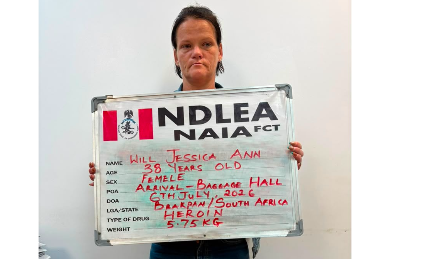 NDLEA
NAIA FCT
NAME WILL JESSICA ANN
AGE 38 YEARS OLD
SEX FEMELE
POA ARRIVAL - BAGGAGE HALL
DOA 6TH JULY, 2026
LGA/STATE BRAKPAN/SOUTH AFRICA
TYPE OF DRUG HEROIN
WEIGHT 5.75 KG